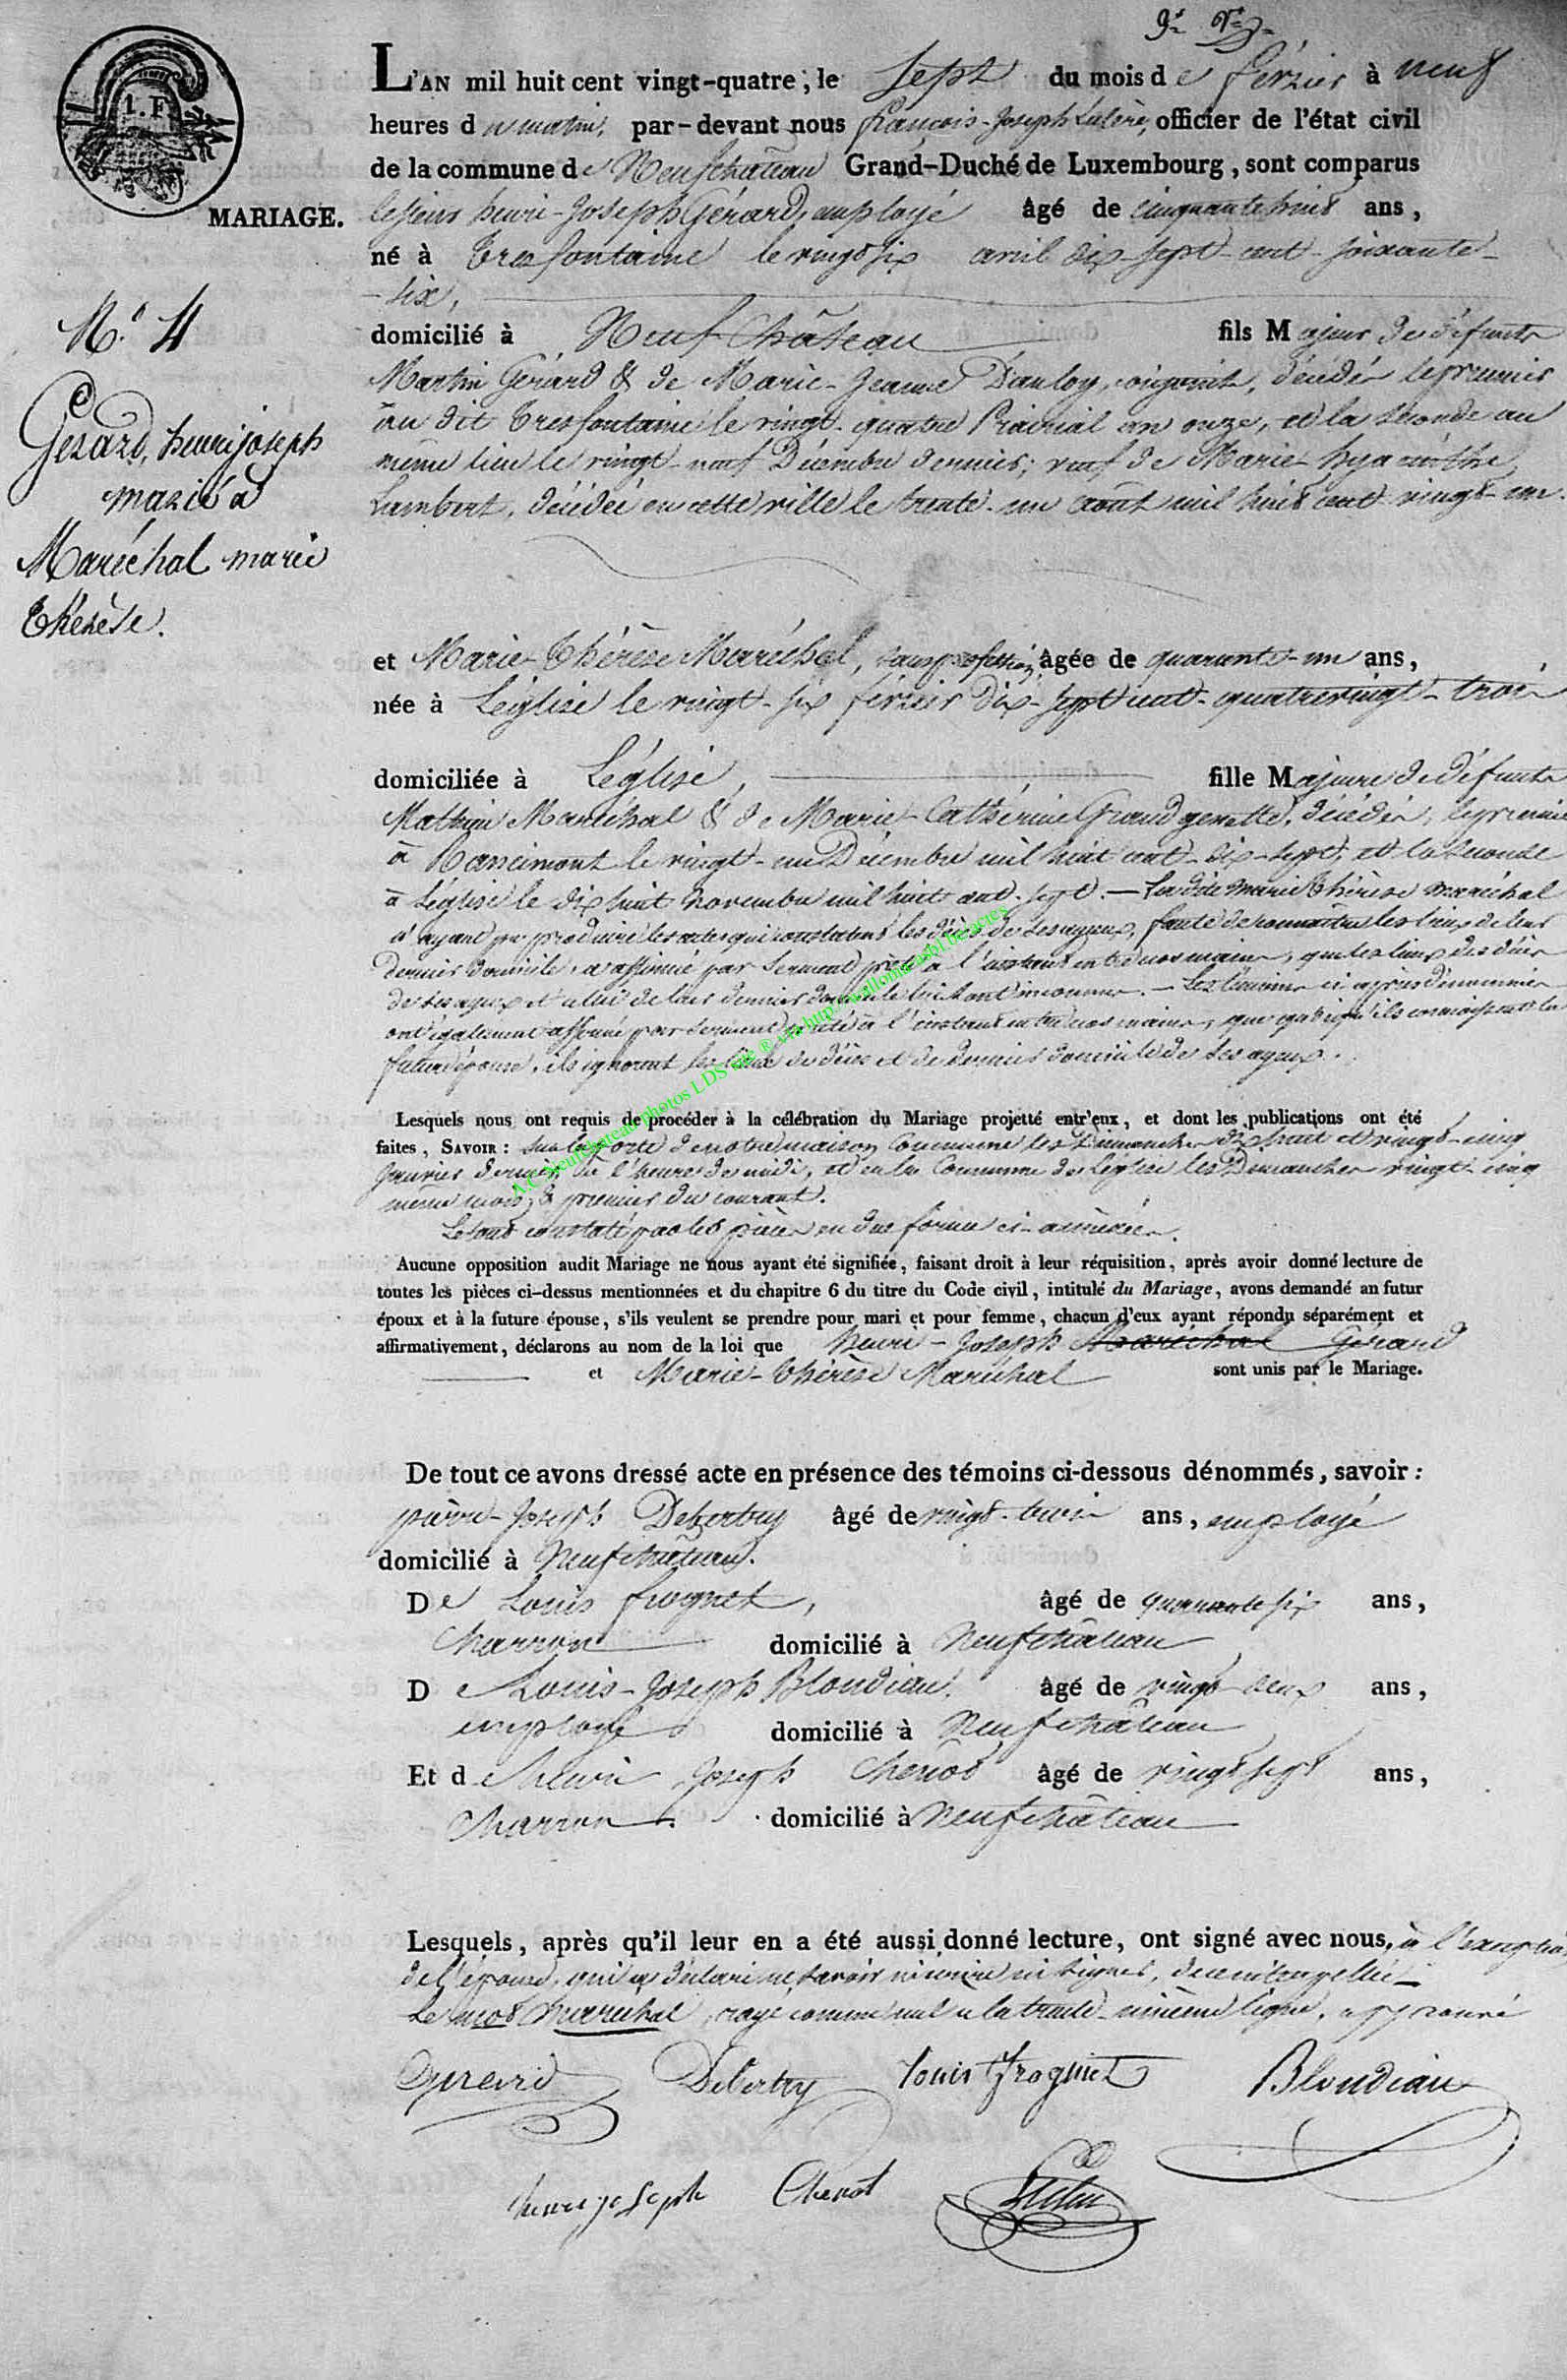 L'AN mil huit cent vingt-quatre, le sept du mois de février à neuf
heures du matin, par-devant nous françois-Joseph officier de l'état civil
de la commune de Neufchâteau Grand-Duché de Luxembourg, sont comparus
1. F
MARIAGE.
le sieur henri-Joseph Gérard, employé âgé de cinquante huit ans,
né à Tresfontaine le vingt six avril dix-sept-cent-soixante-
-six,
domicilié à Neufchâteau fils Majeur de défunts
Martin Gérard & de Marie-Jeanne Dauloy, conjoints, décédés le premier
au dit Tresfontaine le vingt-quatre Prairial an onze, et la seconde au
même lieu le vingt-neuf Décembre dernier; veuf de Marie-hyacinthe
Lambert, décédée en cette ville le trente-un août mil huit cent vingt-un.
N.° 4
Gérard, henri joseph
marié à
Maréchal marie
thérèse.
et Marie-Thérèse Maréchal, sans profession, âgée de quarante-un ans,
née à Léglise le vingt-six février dix-sept cent-quatrevingt-trois
domiciliée à Léglise, fille Majeure de défunts
Mathieu Maréchal & de Marie-Cathérine Grandgenette, décédés, le premier
à Rancimont le vingt-un Décembre mil huit cent-dix-sept, et la seconde
à Léglise le dix huit novembre mil huit cent-sept.— La dite Marie Thérèse maréchal
n'ayant pu produire les actes qui constatent les décès de ses ayeux, faute de connaître les lieux de leur
dernier domicile, a affirmé par serment prêté à l'instant entre nos mains, que les lieux des décès
de ses ayeux et celui de leur dernier domicile lui sont inconnus.— Les témoins ci après dénommés
ont également affirmé par serment prêté à l'instant entre nos mains, que quoiqu'ils connaissent la
future épouse, ils ignorent les lieux de décès et de dernier domicile de ses ayeux.
Lesquels nous ont requis de procéder à la célébration du Mariage projetté entr'eux, et dont les publications ont été
faites, SAVOIR : sur la porte de notre maison Commune les Dimanches dix huit et vingt-cinq
Janvier dernier à l'heure de midi, et en la Commune de Léglise les Dimanches vingt-cinq
même mois, & premier du courant.
Le tout constaté par les pièces en due forme ci-annexées.
Aucune opposition audit Mariage ne nous ayant été signifiée, faisant droit à leur réquisition, après avoir donné lecture de
toutes les pièces ci-dessus mentionnées et du chapitre 6 du titre du Code civil, intitulé du Mariage, avons demandé au futur
époux et à la future épouse, s'ils veulent se prendre pour mari et pour femme, chacun d'eux ayant répondu séparément et
affirmativement, déclarons au nom de la loi que henri-Joseph Maréchal Gérard
et Marie-Thérèse Maréchal sont unis par le Mariage.
De tout ce avons dressé acte en présence des témoins ci-dessous dénommés, savoir :
pierre-Joseph Debertry âgé de vingt-trois ans, employé
domicilié à Neufchâteau.
De Louis frognet, âgé de quarante six ans,
Charron domicilié à Neufchâteau
De Louis-Joseph Blondiau. âgé de vingt-deux ans,
employé domicilié à Neufchâteau
Et de henri Joseph Chenot âgé de vingt sept ans,
Charron. domicilié à Neufchâteau
Lesquels, après qu'il leur en a été aussi donné lecture, ont signé avec nous, à l'exception
de l'épouse, qui a déclaré ne savoir ni écrire ni signer, de ce interpellée.
Le mot Maréchal, rayé comme nul à la trente-unième ligne, approuvé
Gérard Debertry Louis Frognet Blondiau
henri joseph Chenot
A.C. Neufchateau photos LDS via http://wallonia.asbl.be actes